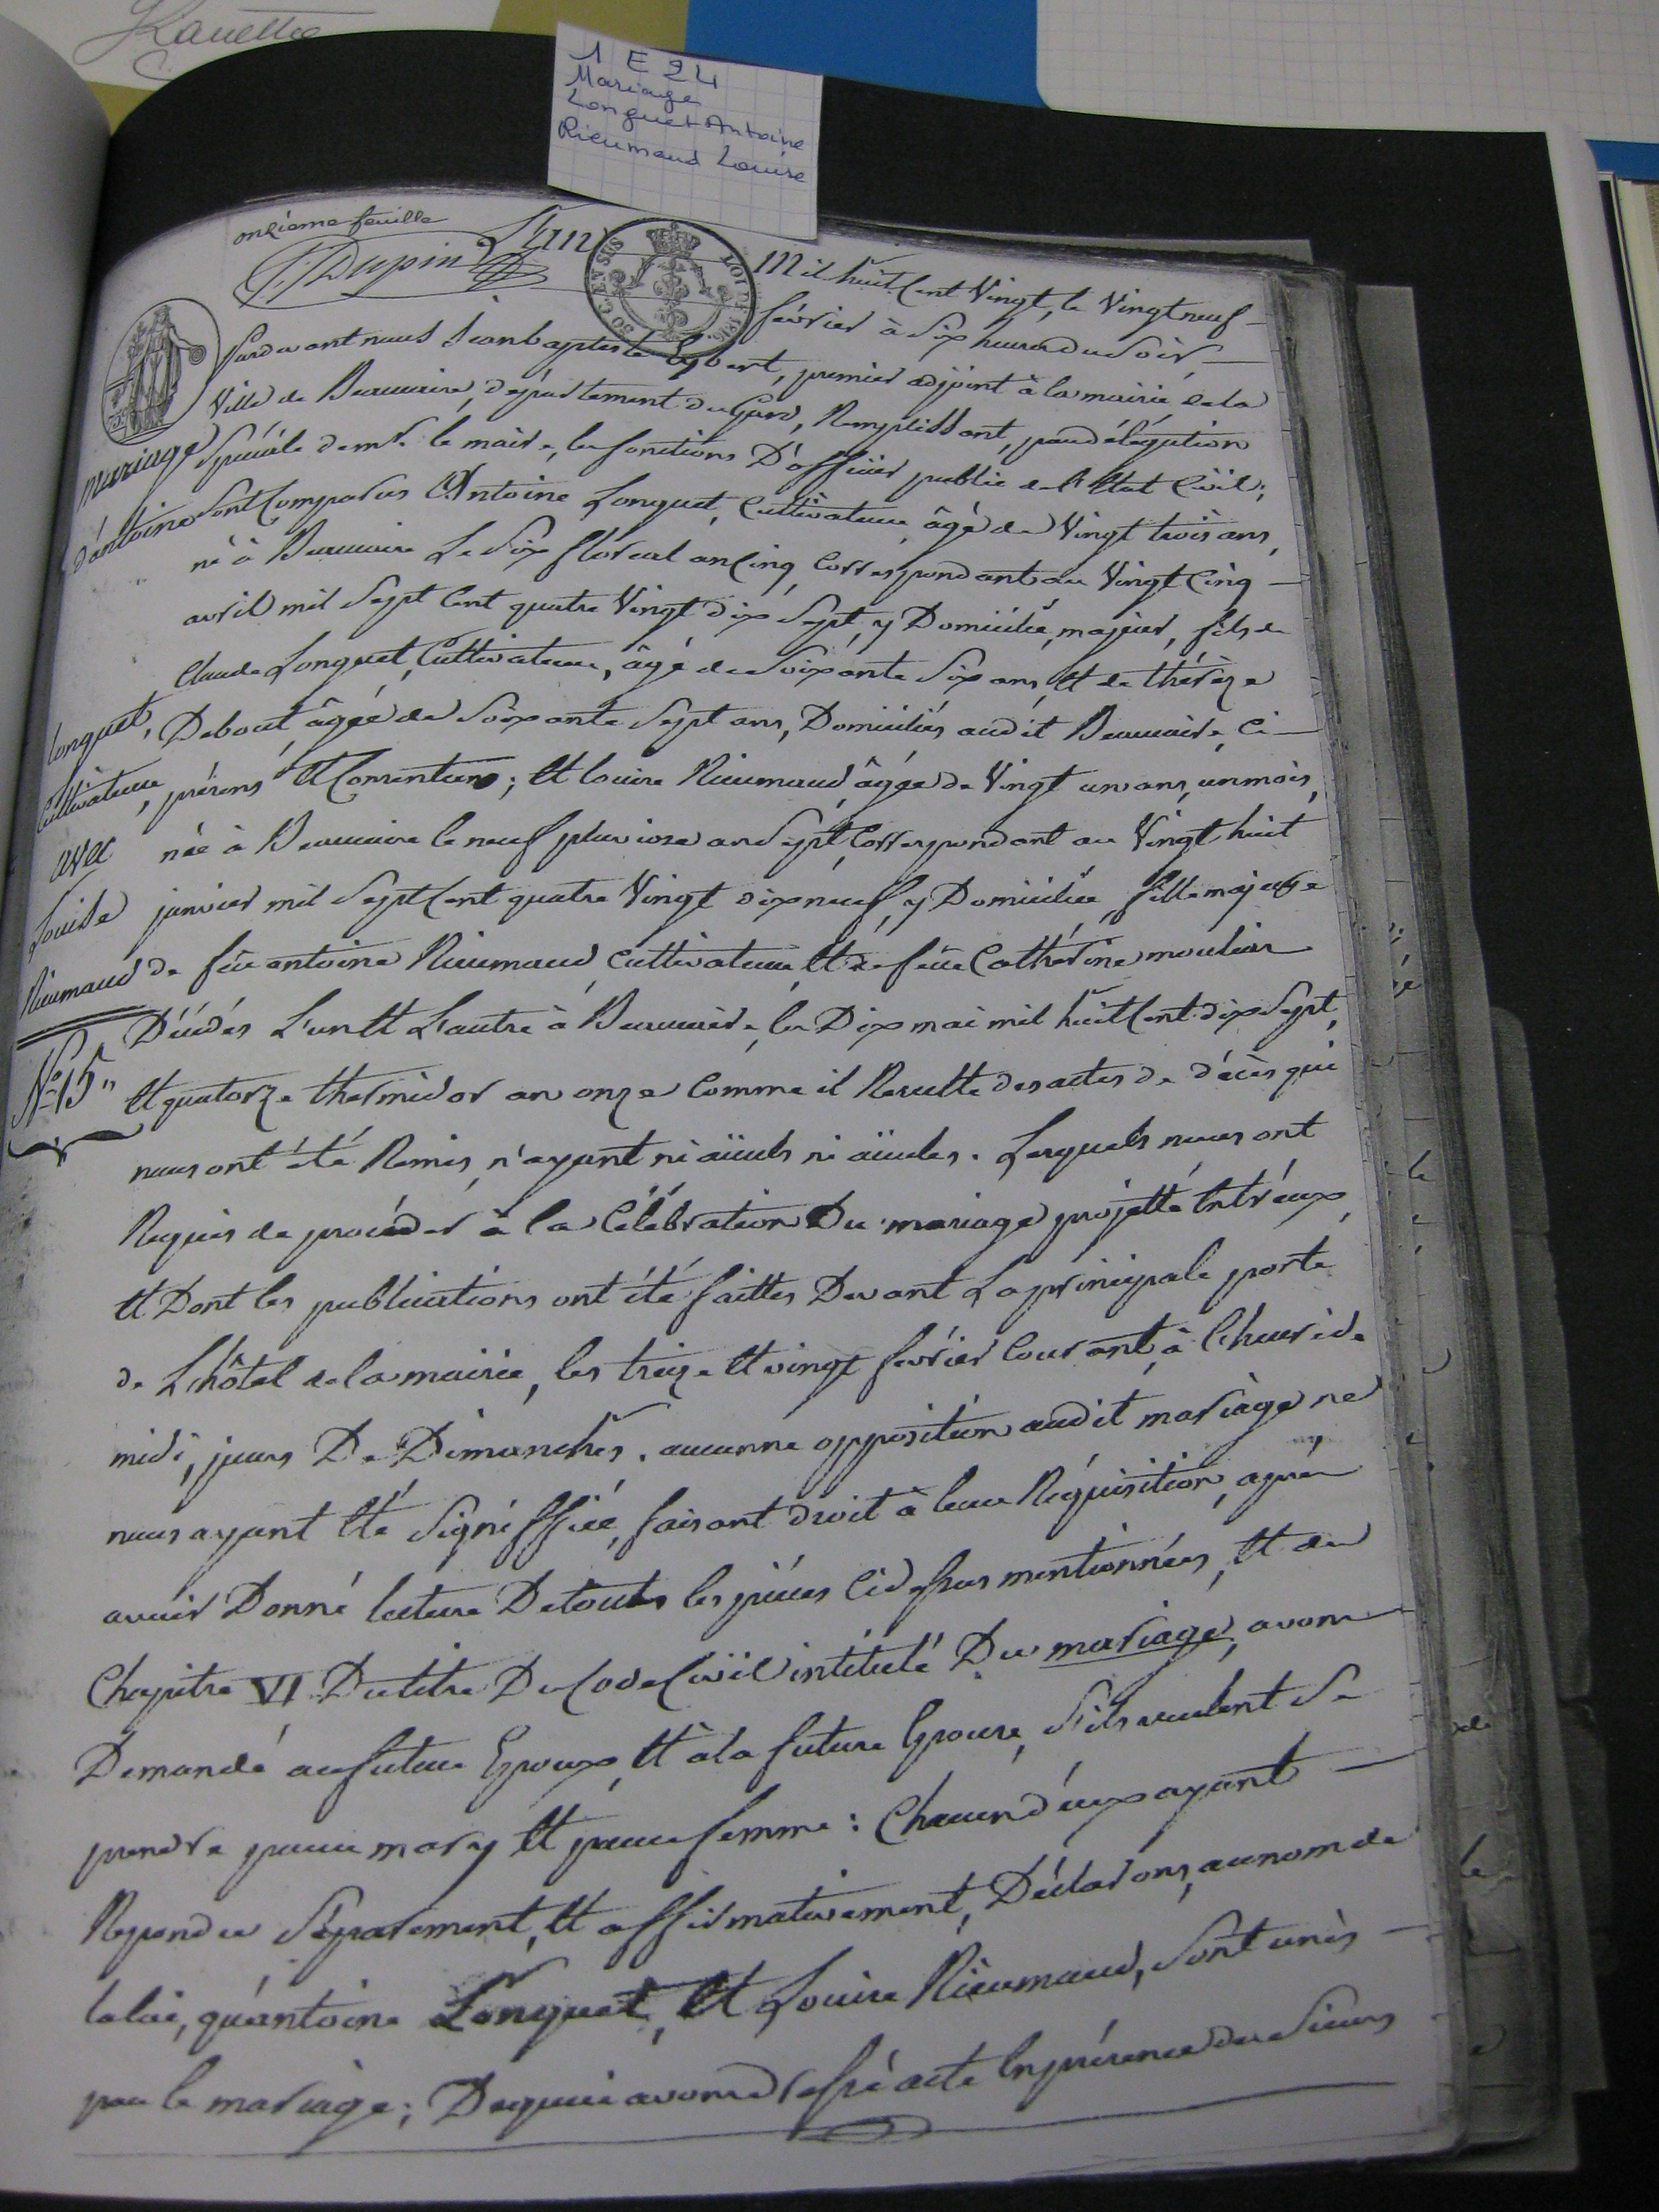 1 E 24
Mariage
Longuet Antoine
Rieumaud Louise
onzième feuille
Dupin
L'an mil huit Cent Vingt, le Vingt neuf
février à Six heures du Soir,
Pardevant nous Jean baptiste, premier adjoint à la mairie de la
Ville de Beaucaire, département du Gard, Remplissant, par délégation
Spéciale de mr. le maire, les fonctions D'officier public de l'Etat Civil;
Sont Comparus Antoine Longuet, Cultivateur âgé de Vingt trois ans,
né à Beaucaire Le Six floréal an Cinq, Correspondant au Vingt Cinq
avril mil Sept Cent quatre Vingt dix Sept, y Domicilié, majeur, fils de
Claude Longuet, Cultivateur, âgé de Soixante Six ans, Et de thérèze
Debout, âgée de Soixante Sept ans, Domiciliés audit Beaucaire, Ci
présens Et Consentans; Et louise Rieumaud, âgée de Vingt un ans, un mois,
née à Beaucaire le neuf pluviose an Sept, Correspondant au Vingt huit
janvier mil Sept Cent quatre Vingt dix neuf, y Domiciliée, fille majeure
de feu antoine Rieumaud, Cultivateur, Et de feue Cathérine moulin
Décédés L'un Et L'autre à Beaucaire, les Dix mai mil huit Cent dix Sept,
Et quatorze thermidor an onze Comme il Resulte des actes de décès qui
nous ont été Remis, n'ayant ni aïeuls ni aïeules. Lesquels nous ont
Requis de procéder à la Célébration Du mariage projetté Entr'eux,
Et Dont les publications ont été faittes Devant La principale porte
de L'hôtel de la mairie, les treize Et vingt février Courant, à l'heure de
midi, jours De Dimanches. aucunne opposition audit mariage ne
nous ayant Eté Signiffiée, faisant droit à leur Réquisition, après
avoir Donné lecture De toutes les pièces Cidessus mentionnées, Et du
Chapitre VI Du titre Du Code Civil intitulé Du mariage, avons
Demandé au futur Epoux, Et à la future Epouse, S'ils veulent Se
prendre pour mary Et pour femme: Chacun d'eux ayant
Repondu Séparement, Et affirmativement, Déclarons, au nom de
la loi, qu'antoine Longuet, Et Louise Rieumaud, Sont unis
par le mariage; De quoi avons dressé acte En présence des Sieurs
mariage
d'antoine
longuet,
Cultivateur,
avec
Louise
Rieumaud
N° 15